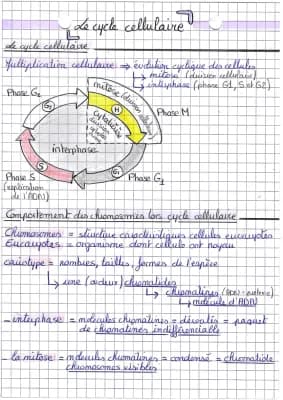 Le cycle cellulaire
Le cycle cellulaire
Multiplication cellulaire ⇒ évolution cyclique des cellules
↳ mitose (division cellulaire)
↳ interphase (phase G1, S et G2)
Phase G2
mitose (division cellulaire)
G2
M
cytodiérèse
division
Phase M
interphase
S
G1
Phase S
(réplication
de l'ADN)
Phase G1
Comportement des chromosomes lors cycle cellulaire
Chromosomes = structure caractéristiques cellules eucaryotes
Eucaryotes = organisme dont cellule ont noyau
caryotype = nombres, tailles, formes de l'espèce
↳ une (ou deux) chromatides
↳ chromatines (ADN + protéine)
↳ molécule d'ADN
- interphase = molécules chromatines = déroulés = paquet
de chromatines indifférenciable
- la mitose = molécules chromatines = condensé = chromatide
chromosomes visibles